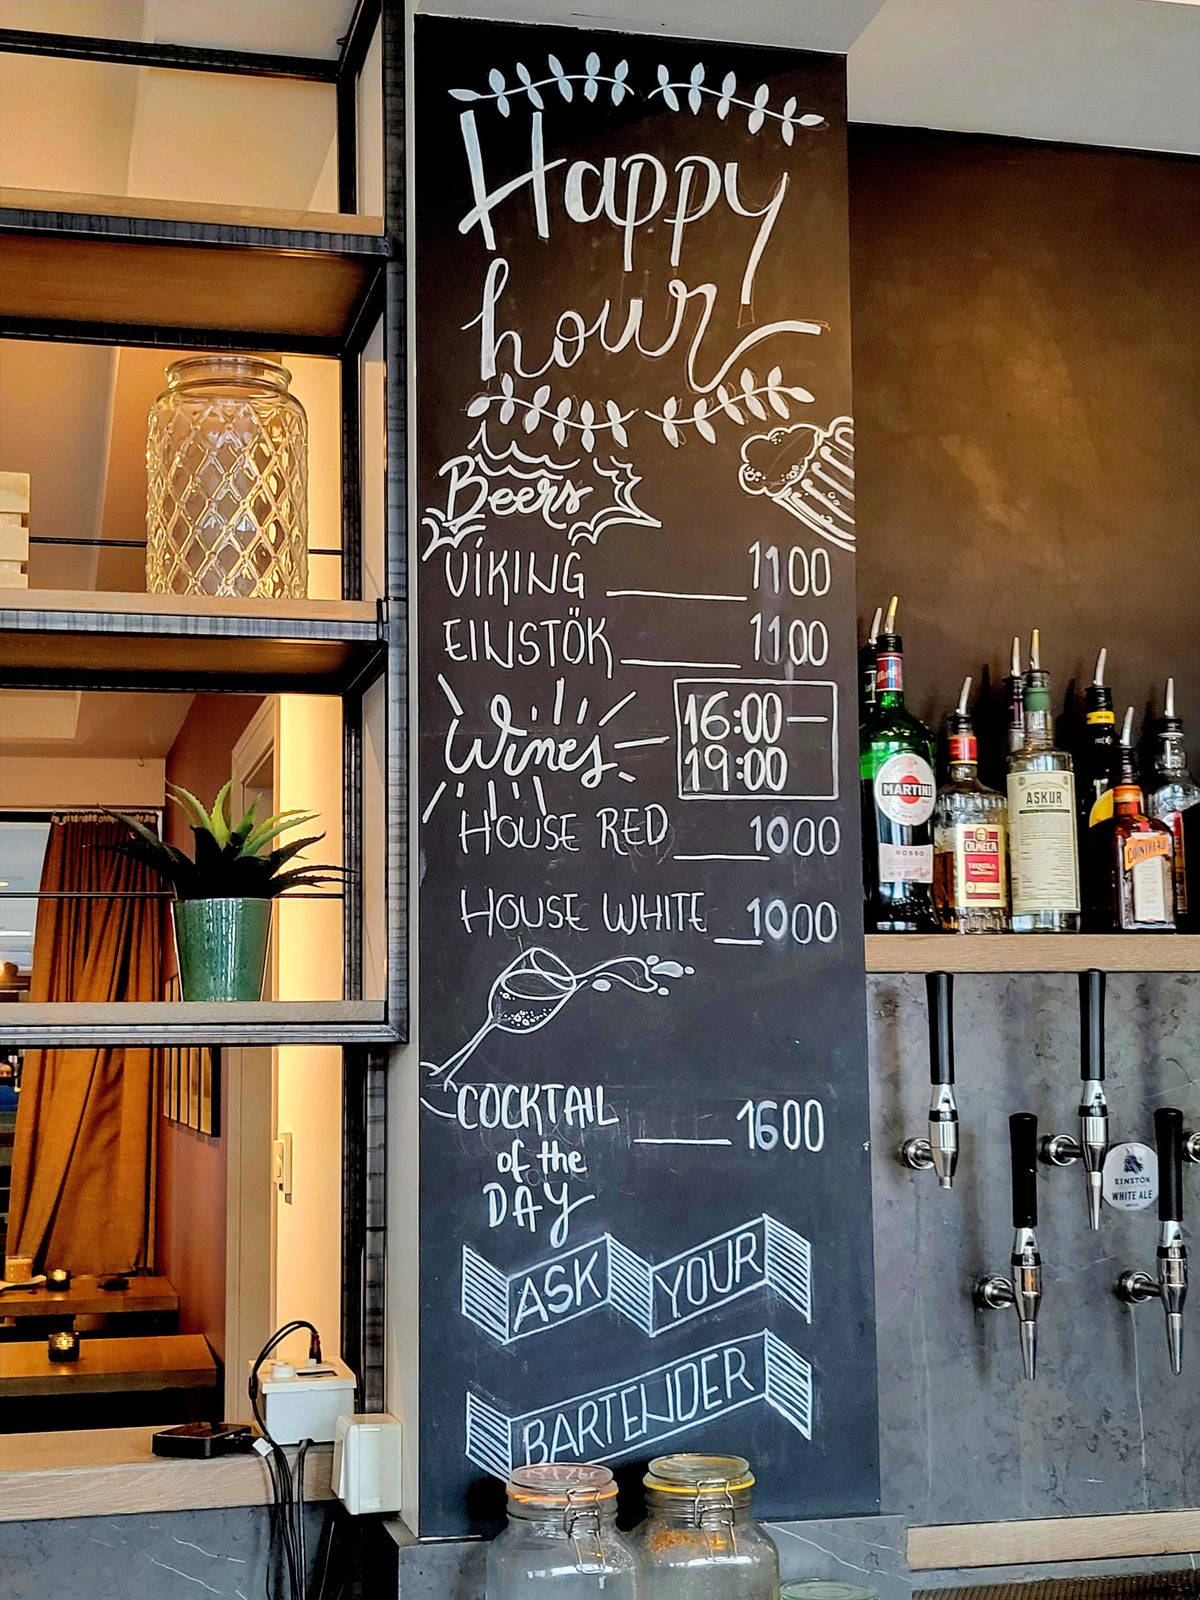 Happy
hour
Beers
VÍKING 1100
EINSTÖK 1100
Wines
16:00—
19:00
HOUSE RED 1000
HOUSE WHITE 1000
COCKTAIL 1600
of the
DAY
ASK YOUR
BARTENDER
MARTINI
ROSSO
OLMECA
TEQUILA
ASKUR
COINTREAU
EINSTÖK
WHITE ALE